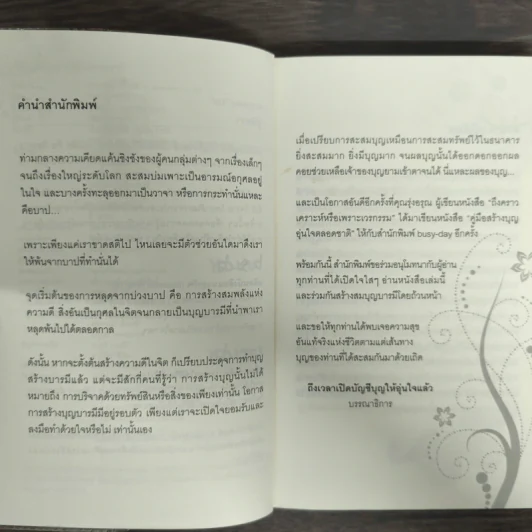 คำนำสำนักพิมพ์
ท่ามกลางความเคียดแค้นชิงชังของผู้คนกลุ่มต่างๆ จากเรื่องเล็กๆ
จนถึงเรื่องใหญ่ระดับโลก สะสมบ่มเพาะเป็นอารมณ์อกุศลอยู่
ในใจ และบางครั้งทะลุออกมาเป็นวาจา หรือการกระทำนั่นแหละ
คือบาป...
เพราะเพียงแค่เราขาดสติไป ไหนเลยจะมีตัวช่วยอันใดมาดึงเรา
ให้พ้นจากบาปที่ทำนั้นได้
จุดเริ่มต้นของการหลุดจากบ่วงบาป คือ การสร้างสมพลังแห่ง
ความดี สิ่งอันเป็นกุศลในจิตจนกลายเป็นบุญบารมีที่นำพาเรา
หลุดพ้นไปได้ตลอดกาล
ดังนั้น หากจะตั้งต้นสร้างความดีในจิต ก็เปรียบประดุจการทำบุญ
สร้างบารมีแล้ว แต่จะมีสักกี่คนที่รู้ว่า การสร้างบุญนั้นไม่ได้
หมายถึง การบริจาคด้วยทรัพย์สินหรือสิ่งของเพียงเท่านั้น โอกาส
การสร้างบุญบารมีมีอยู่รอบตัว เพียงแต่เราจะเปิดใจยอมรับและ
ลงมือทำด้วยใจหรือไม่ เท่านั้นเอง
เมื่อเปรียบการสะสมบุญเหมือนการสะสมทรัพย์ไว้ในธนาคาร
ยิ่งสะสมมาก ยิ่งมีบุญมาก จนผลบุญนั้นได้ออกดอกออกผล
คอยช่วยเหลือเจ้าของบุญยามเข้าตาจนได้ นี่แหละผลของบุญ...
และเป็นโอกาสอันดีอีกครั้งที่คุณรุ่งอรุณ ผู้เขียนหนังสือ "ถึงคราว
เคราะห์หรือเพราะเวรกรรม" ได้มาเขียนหนังสือ "คู่มือสร้างบุญ
อุ่นใจตลอดชาติ" ให้กับสำนักพิมพ์ busy-day อีกครั้ง
พร้อมกันนี้ สำนักพิมพ์ขอร่วมอนุโมทนากับผู้อ่าน
ทุกท่านที่ได้เปิดใจใสๆ อ่านหนังสือเล่มนี้
และร่วมกันสร้างสมบุญบารมีโดยถ้วนหน้า
และขอให้ทุกท่านได้พบเจอความสุข
อันแท้จริงแห่งชีวิตตามแต่เส้นทาง
บุญของท่านที่ได้สะสมกันมาด้วยเถิด
ถึงเวลาเปิดบัญชีบุญให้อุ่นใจแล้ว
บรรณาธิการ